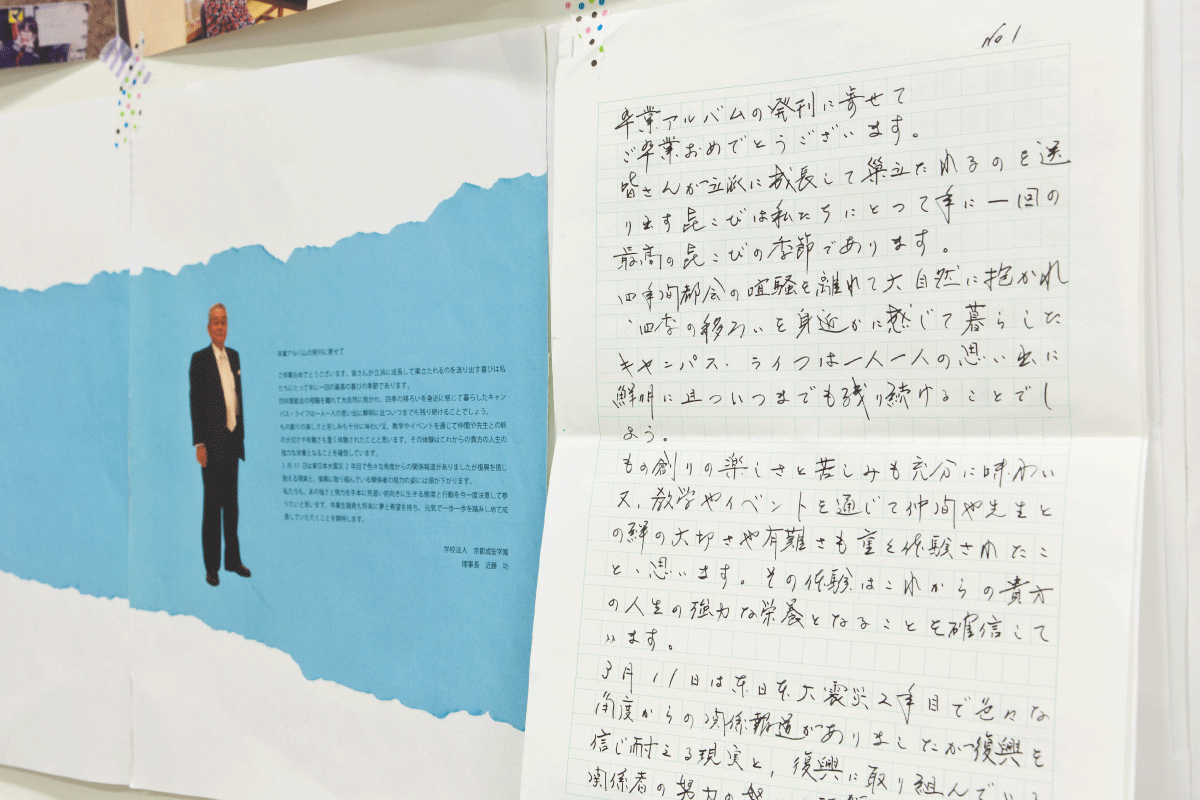 卒業アルバムの発刊に寄せて
ご卒業おめでとうございます。皆さんが立派に成長して巣立たれるのを送り出す喜びは私
たちにとって年に一回の最高の喜びの季節であります。
四年間都会の喧騒を離れて大自然に抱かれ、四季の移ろいを身近に感じて暮らしたキャン
パス・ライフは一人一人の思い出に鮮明に且ついつまでも残り続けることでしょう。
もの創りの楽しさと苦しみも十分に味わい又、教学やイベントを通じて仲間や先生との絆
の大切さや有難さも重く体験されたことと思います。その体験はこれからの貴方の人生の
強力な栄養となることを確信しています。
3月11日は東日本大震災2年目で色々な角度からの関係報道がありましたが復興を信じ
耐える現実と、復興に取り組んでいる関係者の努力の姿には頭が下がります。
私たちも、あの強さと努力を手本に見習い前向きに生きる態度と行動を今一度決意して参
りたいと思います。卒業生諸君も将来に夢と希望を持ち、元気で一歩一歩を踏みしめて成
長していただくことを期待します。
学校法人 京都成安学園
理事長 近藤 功
No 1
卒業アルバムの発刊に寄せて
ご卒業おめでとうございます。
皆さんが立派に成長して巣立たれるのを送
り出す昆こびは私たちにとって年に一回の
最高の昆こびの季節であります。
四年间都会の喧騒を離れて大自然に抱かれ
、四季の移ろいを身近かに感じて暮らした
キャンパス・ライフは一人一人の思い出に
鮮明に且ついつまでも残り続けることでし
ょう。
もの創りの楽しさと苦しみも充分に味わい
又、教学やイベントを通じて仲间や先生と
の鮮の大切さや有難さも重く体験されたこ
と、思います。その体験はこれからの貴方
の人生の強力な栄養となることを確信して
います。
3月11日は东日本大震災2年目で色々な
角度からの関係報道がありましたが復興を
信じ耐える現実と、復興に取り組んでいる
関係者の努力の